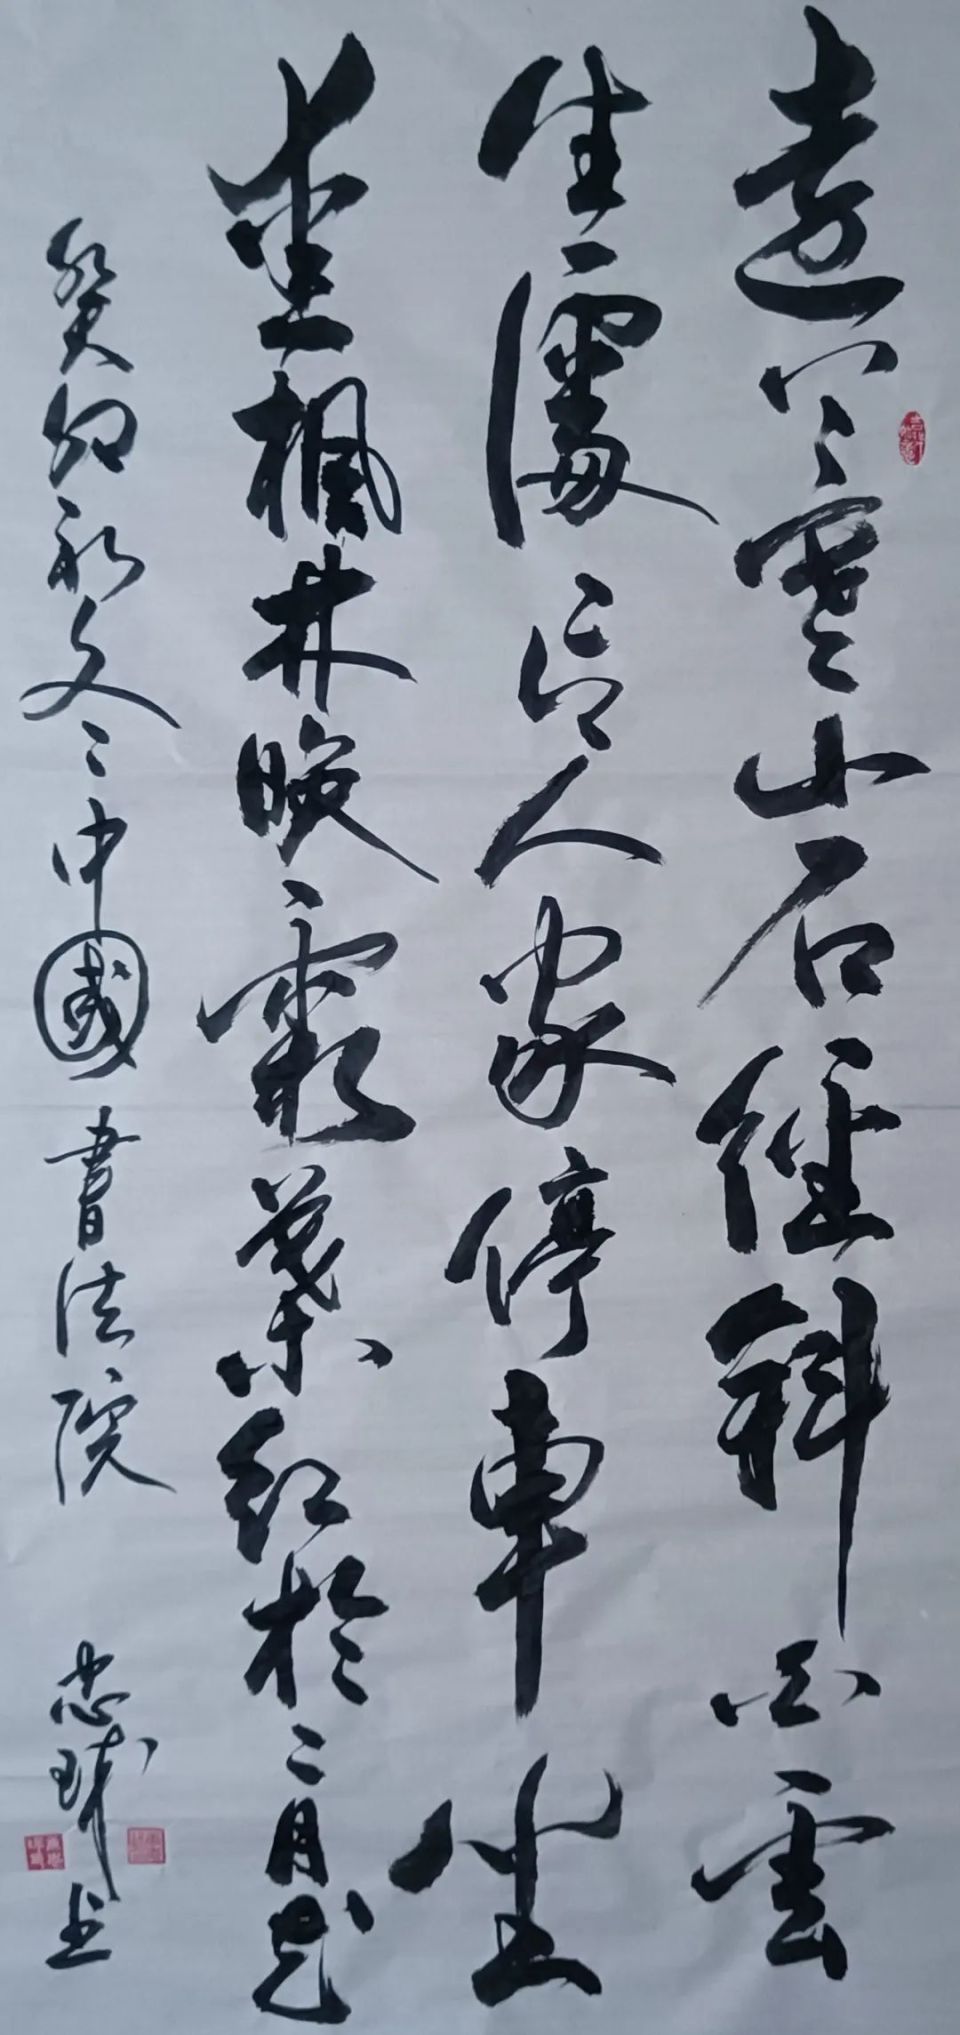 遠上寒山石徑斜白雲
生處有人家停車坐
愛楓林晚霜葉紅於二月花
癸卯初冬中國書法院 忠球